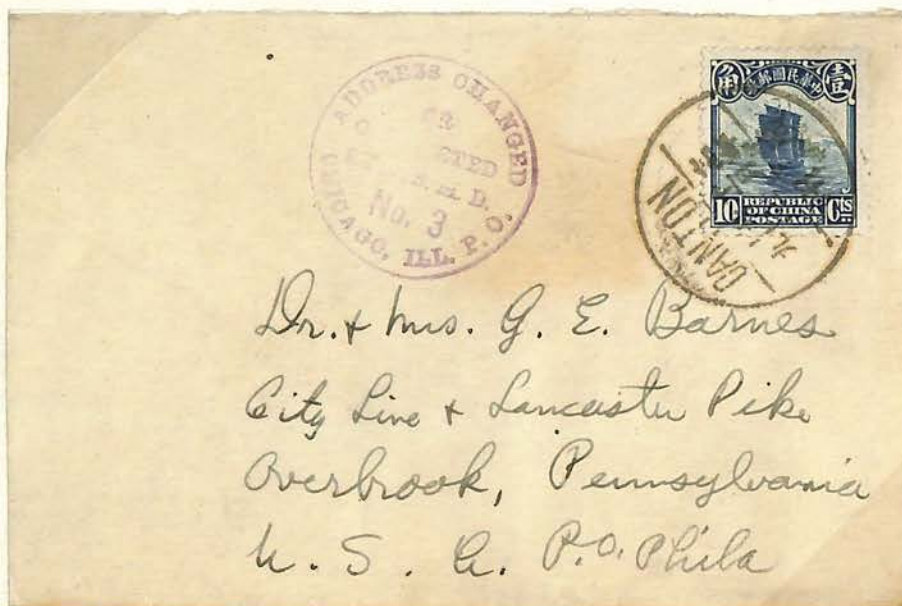 ADDRESS CHANGED
OR
No. 3
CHICAGO, ILL. P. O.
角 中華民國郵政 壹
10 REPUBLIC OF CHINA POSTAGE Cts
CANTON
Dr. & Mrs. G. E. Barnes
City Line & Lancaster Pike
Overbrook, Pennsylvania
U. S. A. P.O. Phila